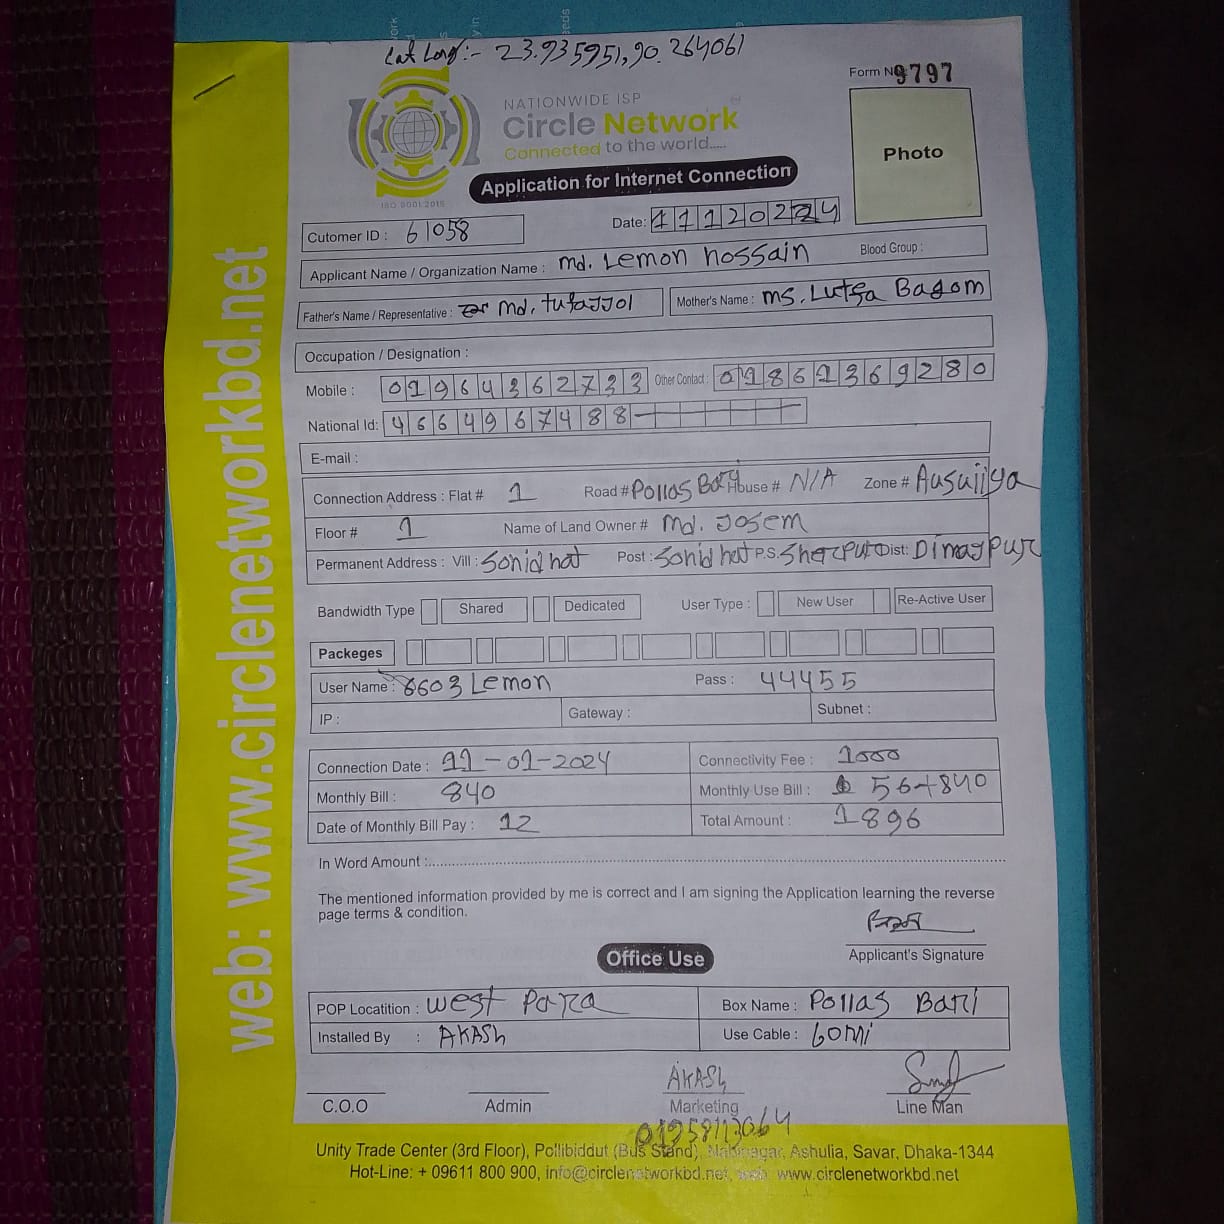 Lat Long:- 23.935951, 90.264061
Form No 9797
NATIONWIDE ISP
Circle Network
Connected to the world.....
ISO 9001:2015
Photo
Application for Internet Connection
Date: 11120224
Cutomer ID : 61058
Applicant Name / Organization Name : md. Lemon hossain Blood Group :
Father's Name / Representative : md. tufajjol Mother's Name : ms. Lutfa Bagom
Occupation / Designation :
Mobile : 01964362733 Other Contact : 01861369280
National Id: 4664967488
E-mail :
Connection Address : Flat # 1 Road # Pollas Bary House # N/A Zone # Ausujiya
Floor # 1 Name of Land Owner # md. Josem
Permanent Address : Vill : Sonid hat Post : Sonid hat P.S. Sherpur Dist: Dimajpur
Bandwidth Type Shared Dedicated User Type : New User Re-Active User
Packeges
User Name : 6603 Lemon Pass : 44455
IP : Gateway : Subnet :
Connection Date : 11-01-2024 Connectivity Fee : 1000
Monthly Bill : 840 Monthly Use Bill : 56+840
Date of Monthly Bill Pay : 12 Total Amount : 1896
In Word Amount :
The mentioned information provided by me is correct and I am signing the Application learning the reverse
page terms & condition.
Applicant's Signature
Office Use
POP Locatition : West Para Box Name : Pollas Bari
Installed By : AKASH Use Cable : 60mi
AKASH
C.O.O Admin Marketing Line Man
Unity Trade Center (3rd Floor), Pollibiddut (Bus Stand), Nabinagar, Ashulia, Savar, Dhaka-1344
Hot-Line: + 09611 800 900, info@circlenetworkbd.net, web: www.circlenetworkbd.net
web: www.circlenetworkbd.net